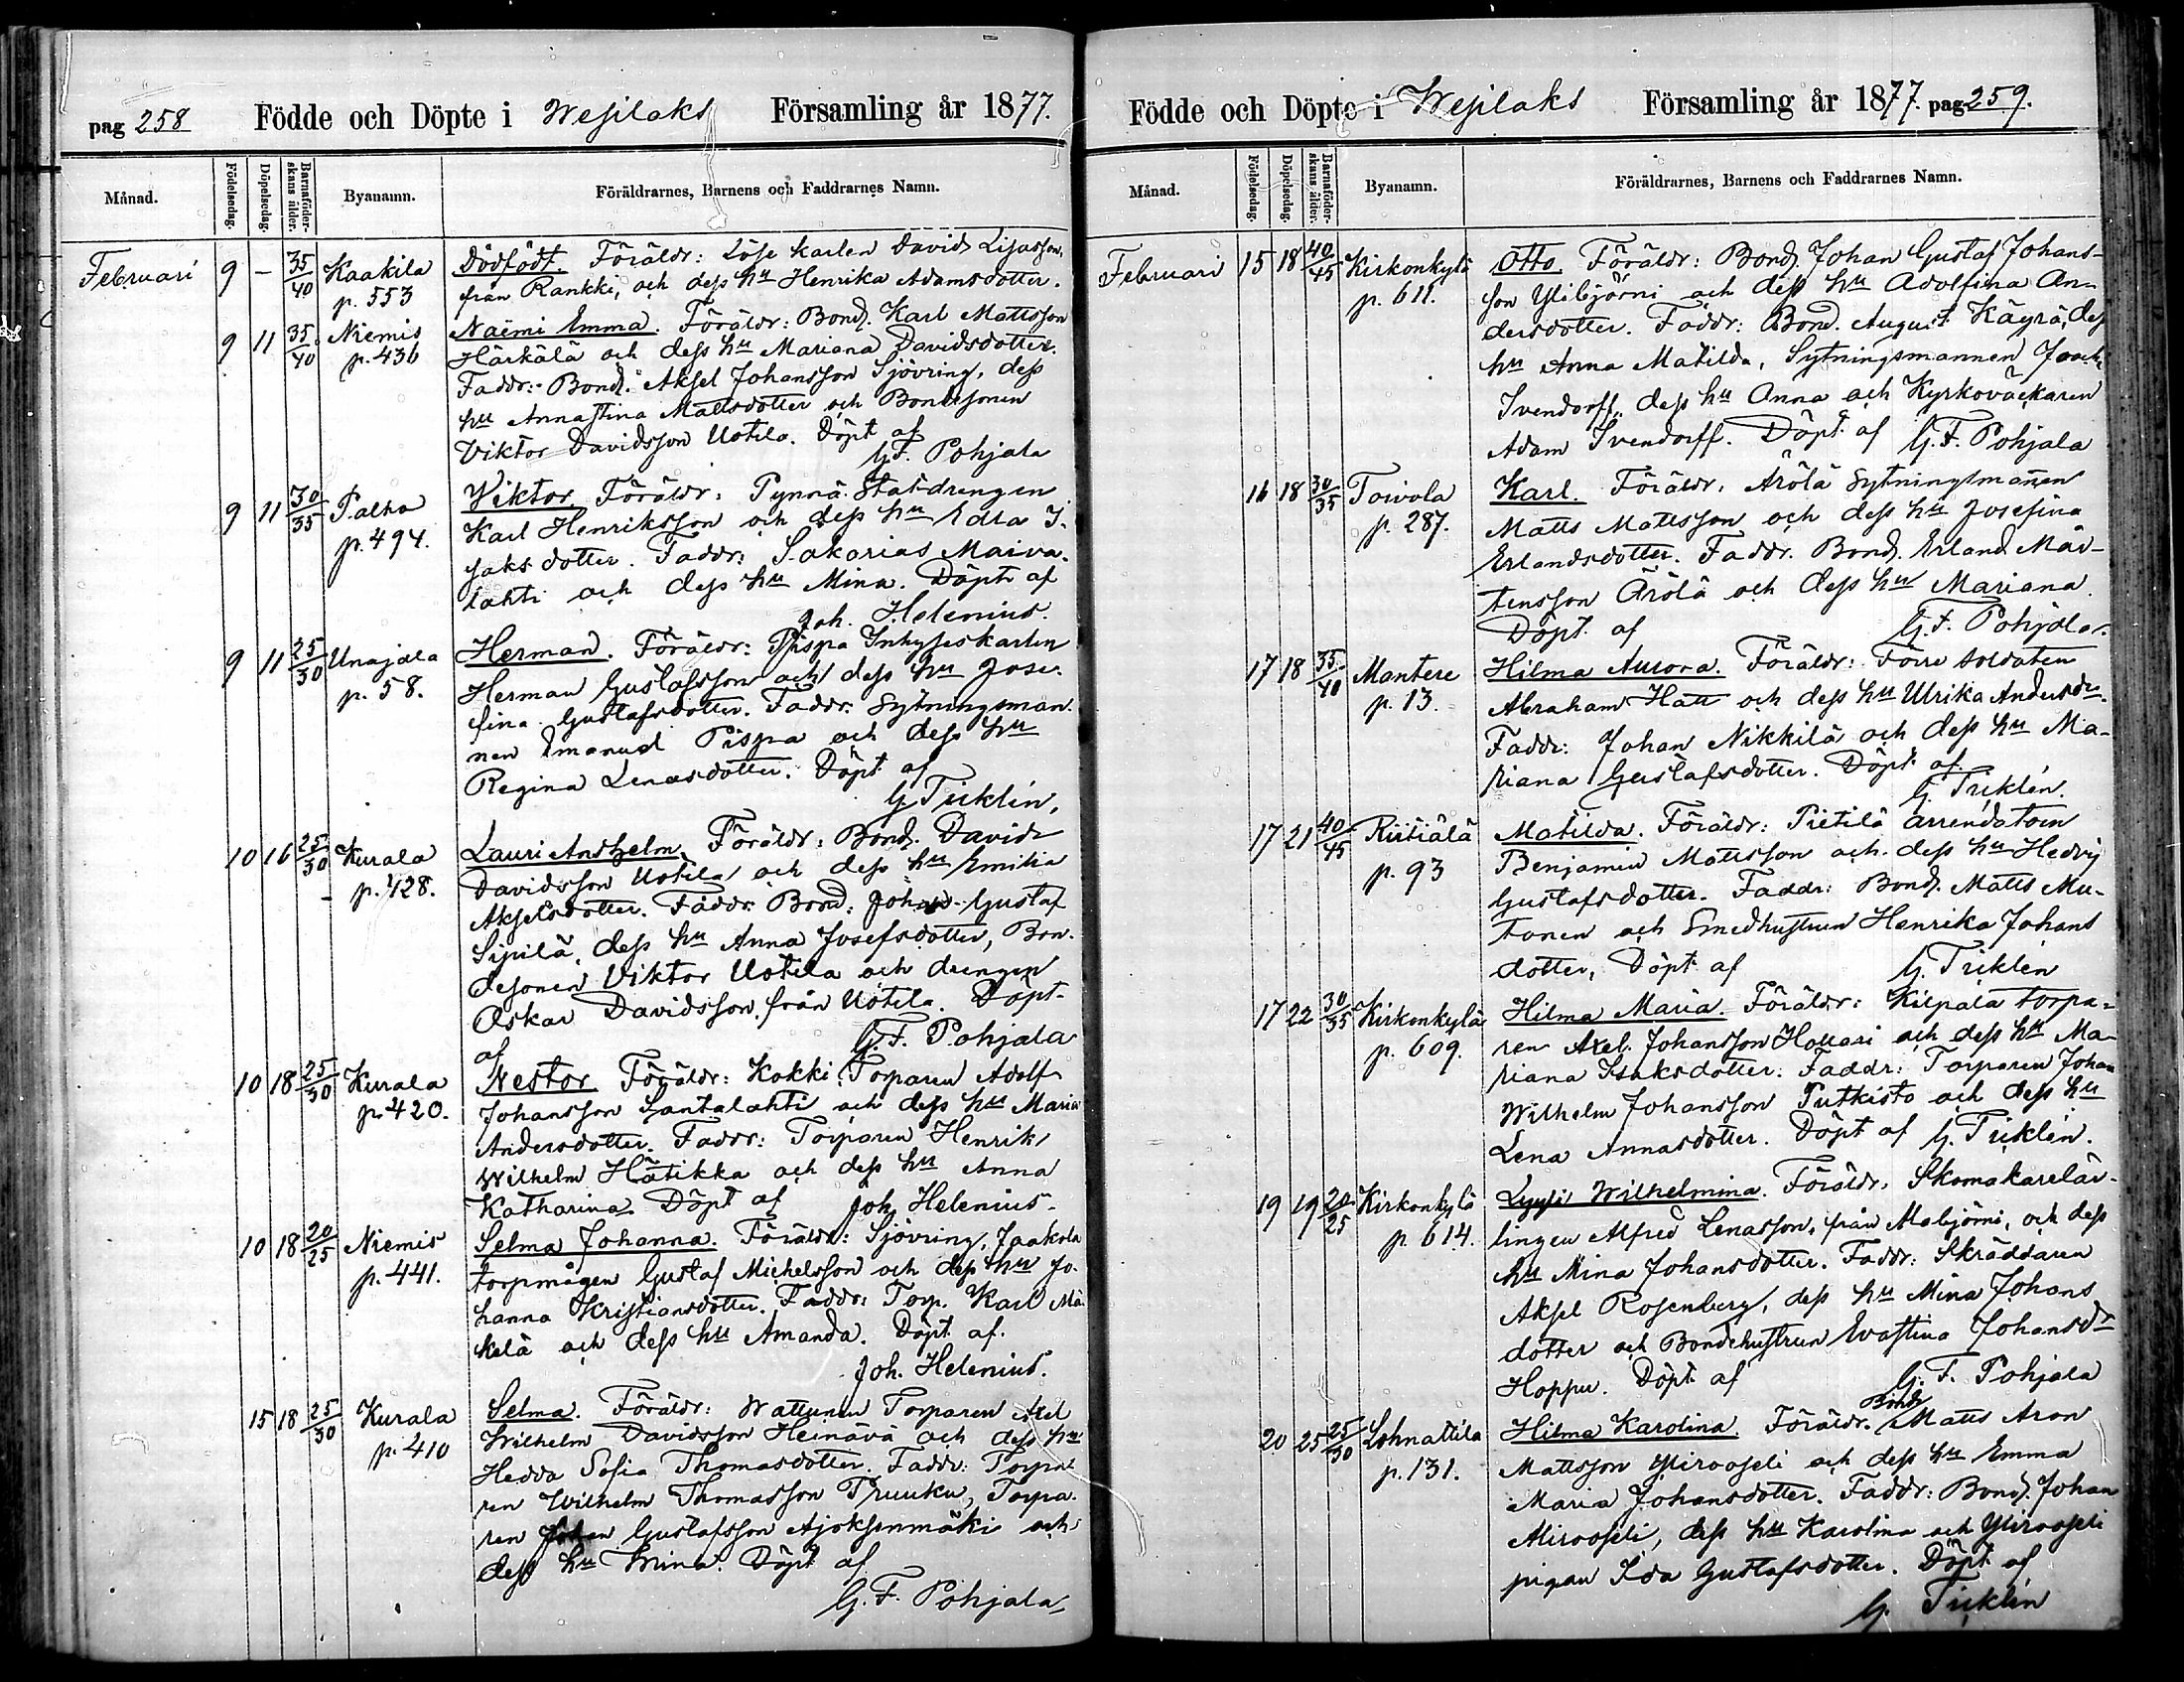 pag 258 Födde och Döpte i Wesilaks Församling år 1877.
Månad. Födelsedag. Döpelsedag. Barnaföderskans ålder. Byanamn. Föräldrarnes, Barnens och Faddrarnes Namn.
Februari 9 – 35/40 Kaakila Dödfödt. Föräldr: Löse karlen David
p. 553 från Rankki, och dess hu Henrika Adamsdotter.
9 11 35/40 Niemis Naëmi Emma. Föräldr: Bond. Karl Mattsson
p. 436 Härkälä och dess hu Mariana Davidsdotter.
Faddr: Bond. Aksel Johansson Sjövring, dess
hu Annastina Mattsdotter och Bondesonen
Viktor Davidsson Uotila. Döpt af
G.F. Pohjala
9 11 30/35 Palho Viktor. Föräldr: Pynnä Statdrengen
p. 494. Karl Henriksson och dess hu Edla I-
saksdotter. Faddr: Sakarias Maiva-
lahti och dess hu Mina. Döpt af
Joh. Helenius.
9 11 25/30 Unajala Herman. Föräldr: Pispa Inhyseskarlen
p. 58. Herman Gustafsson och dess hu Jose-
fina Gustafsdotter. Faddr. Sytningsman-
nen Emanuel Pispa och dess hu
Regina Lenasdotter. Döpt af
G Ticklén,
10 16 25/30 Kurala Lauri Anshelm. Föräldr: Bond. David
p. 428. Davidsson Uotila och dess hu Emilia
Akselsdotter. Faddr. Bond: Johan Gustaf
Sipilä, dess hu Anna Josefsdotter, Bon-
desonen Viktor Uotila och drengen
Oskar Davidsson från Uotila. Döpt
af G.F. Pohjala
10 18 25/30 Kurala Nestor Föräldr: Kokki Torparen Adolf
p. 420. Johansson Santalahti och dess hu Maria
Andersdotter. Faddr: Torparen Henrik
Wilhelm Hätikka och dess hu Anna
Katharina. Döpt af Joh. Helenius
10 18 20/25 Niemis Selma Johanna. Föräldr: Sjövring, Jaakola
p. 441. torpmågen Gustaf Michelsson och dess hu Jo-
hanna Kristiansdotter. Faddr: Torp. Karl Mä-
kelä och dess hu Amanda. Döpt af.
Joh. Helenius.
15 18 25/30 Kurala Selma. Föräldr: Wattunen Torparen Axel
p. 410 Wilhelm Davidsson Heinävä och dess hu
Hedda Sofia Thomasdotter. Faddr: Torpa-
ren Wilhelm Thomasson Pruuku, Torpa-
ren Johan Gustafsson Ajoksenmäki och
dess hu Mina. Döpt af
G.F. Pohjala
Födde och Döpte i Wesilaks Församling år 1877. pag 259.
Månad. Födelsedag. Döpelsedag. Barnaföderskans ålder. Byanamn. Föräldrarnes, Barnens och Faddrarnes Namn.
Februari 15 18 40/45 Kirkonkylä Otto. Föräldr: Bond. Johan Gustaf Johans-
p. 611. son Ylibjörni och dess hu Adolfina An-
dersdotter. Faddr: Bond. August Käyrä, dess
hu Anna Matilda, Sytningsmannen
Svendorff, dess hu Anna och Kyrkoväckaren
Adam Svendorff. Döpt af G.F. Pohjala
16 18 30/35 Toivola Karl. Föräldr. Arölä Sytningsmannen
p. 287. Matts Mattsson och dess hu Josefina
Erlandsdotter. Faddr. Bond. Erland Mår-
tensson Ärölä och dess hu Mariana.
Döpt af G.F. Pohjala.
17 18 35/40 Mantere Hilma Aurora. Föräldr: Förre soldaten
p. 13. Abraham Hatt och dess hu Ulrika Andersdr.
Faddr: Johan Nikkilä och dess hu Ma-
riana Gustafsdotter. Döpt af
G Ticklén.
17 21 40/45 Riitiälä Matilda. Föräldr: Pietilä arrendatorn
p. 93 Benjamin Mattsson och dess hu Hedvig
Gustafsdotter. Faddr: Bond. Matts Mu-
tonen och Smedhustrun Henrika Johans
dotter, Döpt af G. Ticklén
17 22 30/35 Kirkonkylä Hilma Maria. Föräldr: Kilpala torpa-
p. 609. ren Axel Johansson Hollari och dess hu Ma-
riana Isaksdotter. Faddr: Torparen Johan
Wilhelm Johansson Putkisto och dess hu
Lena Annasdotter. Döpt af G. Ticklén.
19 19 20/25 Kirkonkylä Lyyli Wilhelmina. Föräldr. Skomakarelär-
p. 614. lingen Alfred Lenasson, från Alabjörni, och dess
hu Mina Johansdotter. Faddr: Skräddaren
Aksel Rosenberg, dess hu Mina Johans
dotter och Bondehustrun Evastina Johansdr
Hoppu. Döpt af G.F. Pohjala
20 25 25/30 Lohnattila Hilma Karolina. Föräldr. Bond. Matts Aron
p. 131. Mattsson Yliroopeli och dess hu Emma
Maria Johansdotter. Faddr: Bond. Johan
Aliroopeli, dess hu Karolina och Yliroopeli
pigan Ida Gustafsdotter. Döpt af
G. Ticklén